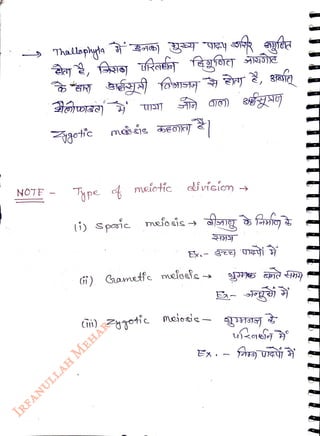 → Thallophyta में इनका मुख्य पादप शरीर अगुणित
होता है, जिसका परिवर्तन द्विगुणित जायगोट
के द्वारा अर्धसूत्री विभाजन से होता है, अर्थात्
थैलोफाइटा में पाया जाने वाला अर्धसूत्रण
Zygotic meiosis कहलाता है।
NOTE - Type of meiotic division →
(i) Sporic meiosis → बीजाणु के निर्माण के
समय
Ex.- उच्च पादपों में
(ii) Gametic meiosis → युग्मक बनते समय
Ex- जन्तुओं में
(iii) Zygotic meiosis - युग्मनज के
परिवर्धन में
Ex. - निम्न पादपों में
IRFANULLAH MEHAR